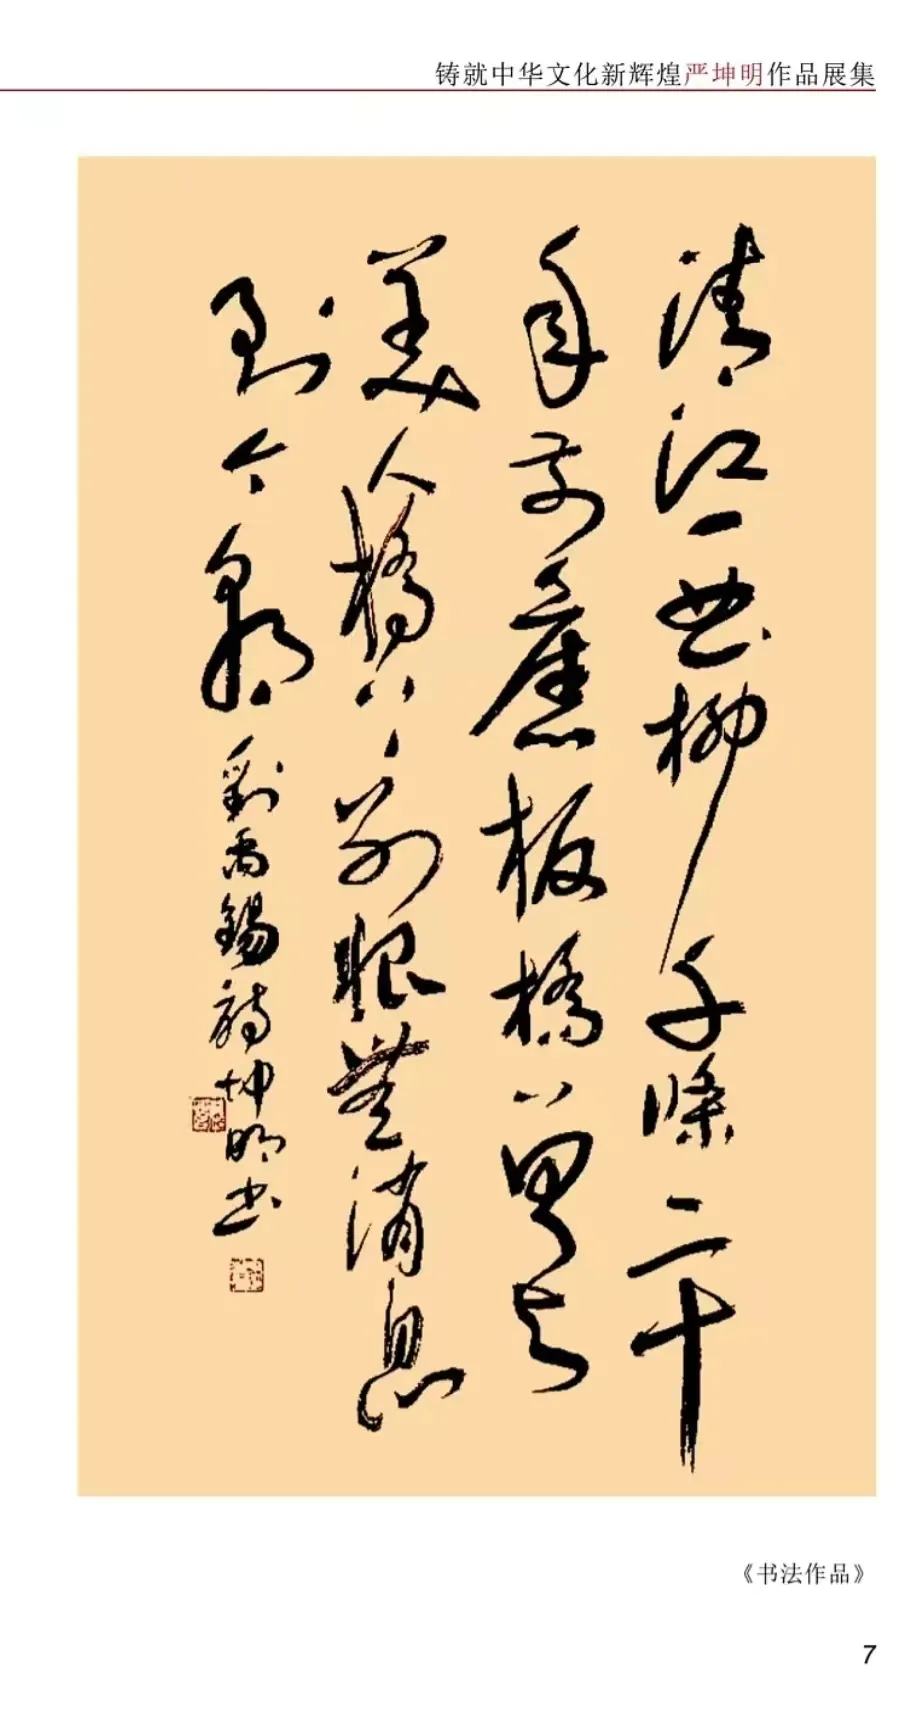 铸就中华文化新辉煌严坤明作品展集
清江一曲柳千條二十
年前舊板橋曾与
美人橋上別恨無消息
到今朝 劉禹錫詩坤明书
《书法作品》
7